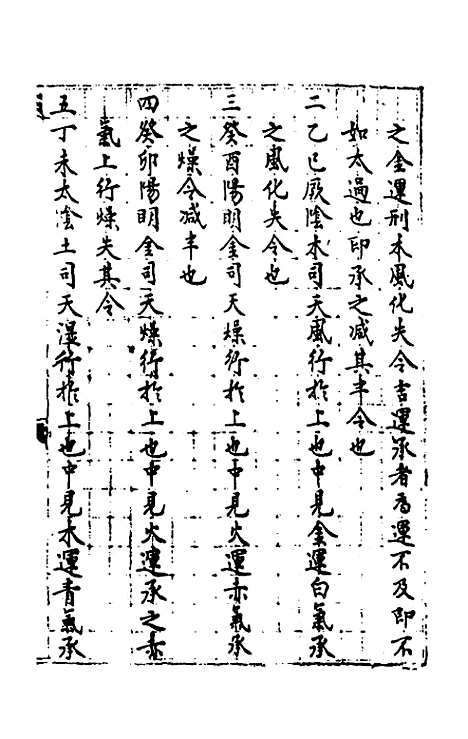 之金運刑木風化失令吉運承者為運不及即不
如太過也即承之減其半令也
二乙巳厥陰木司天風行於上也中見金運白氣承
之風化失令也
三癸酉陽明金司天燥行於上也中見火運赤氣承
之燥令減半也
四癸卯陽明金司天燥行於上也中見火運承之赤
氣上行燥失其令
五丁未太陰土司天濕行於上也中見木運青氣承